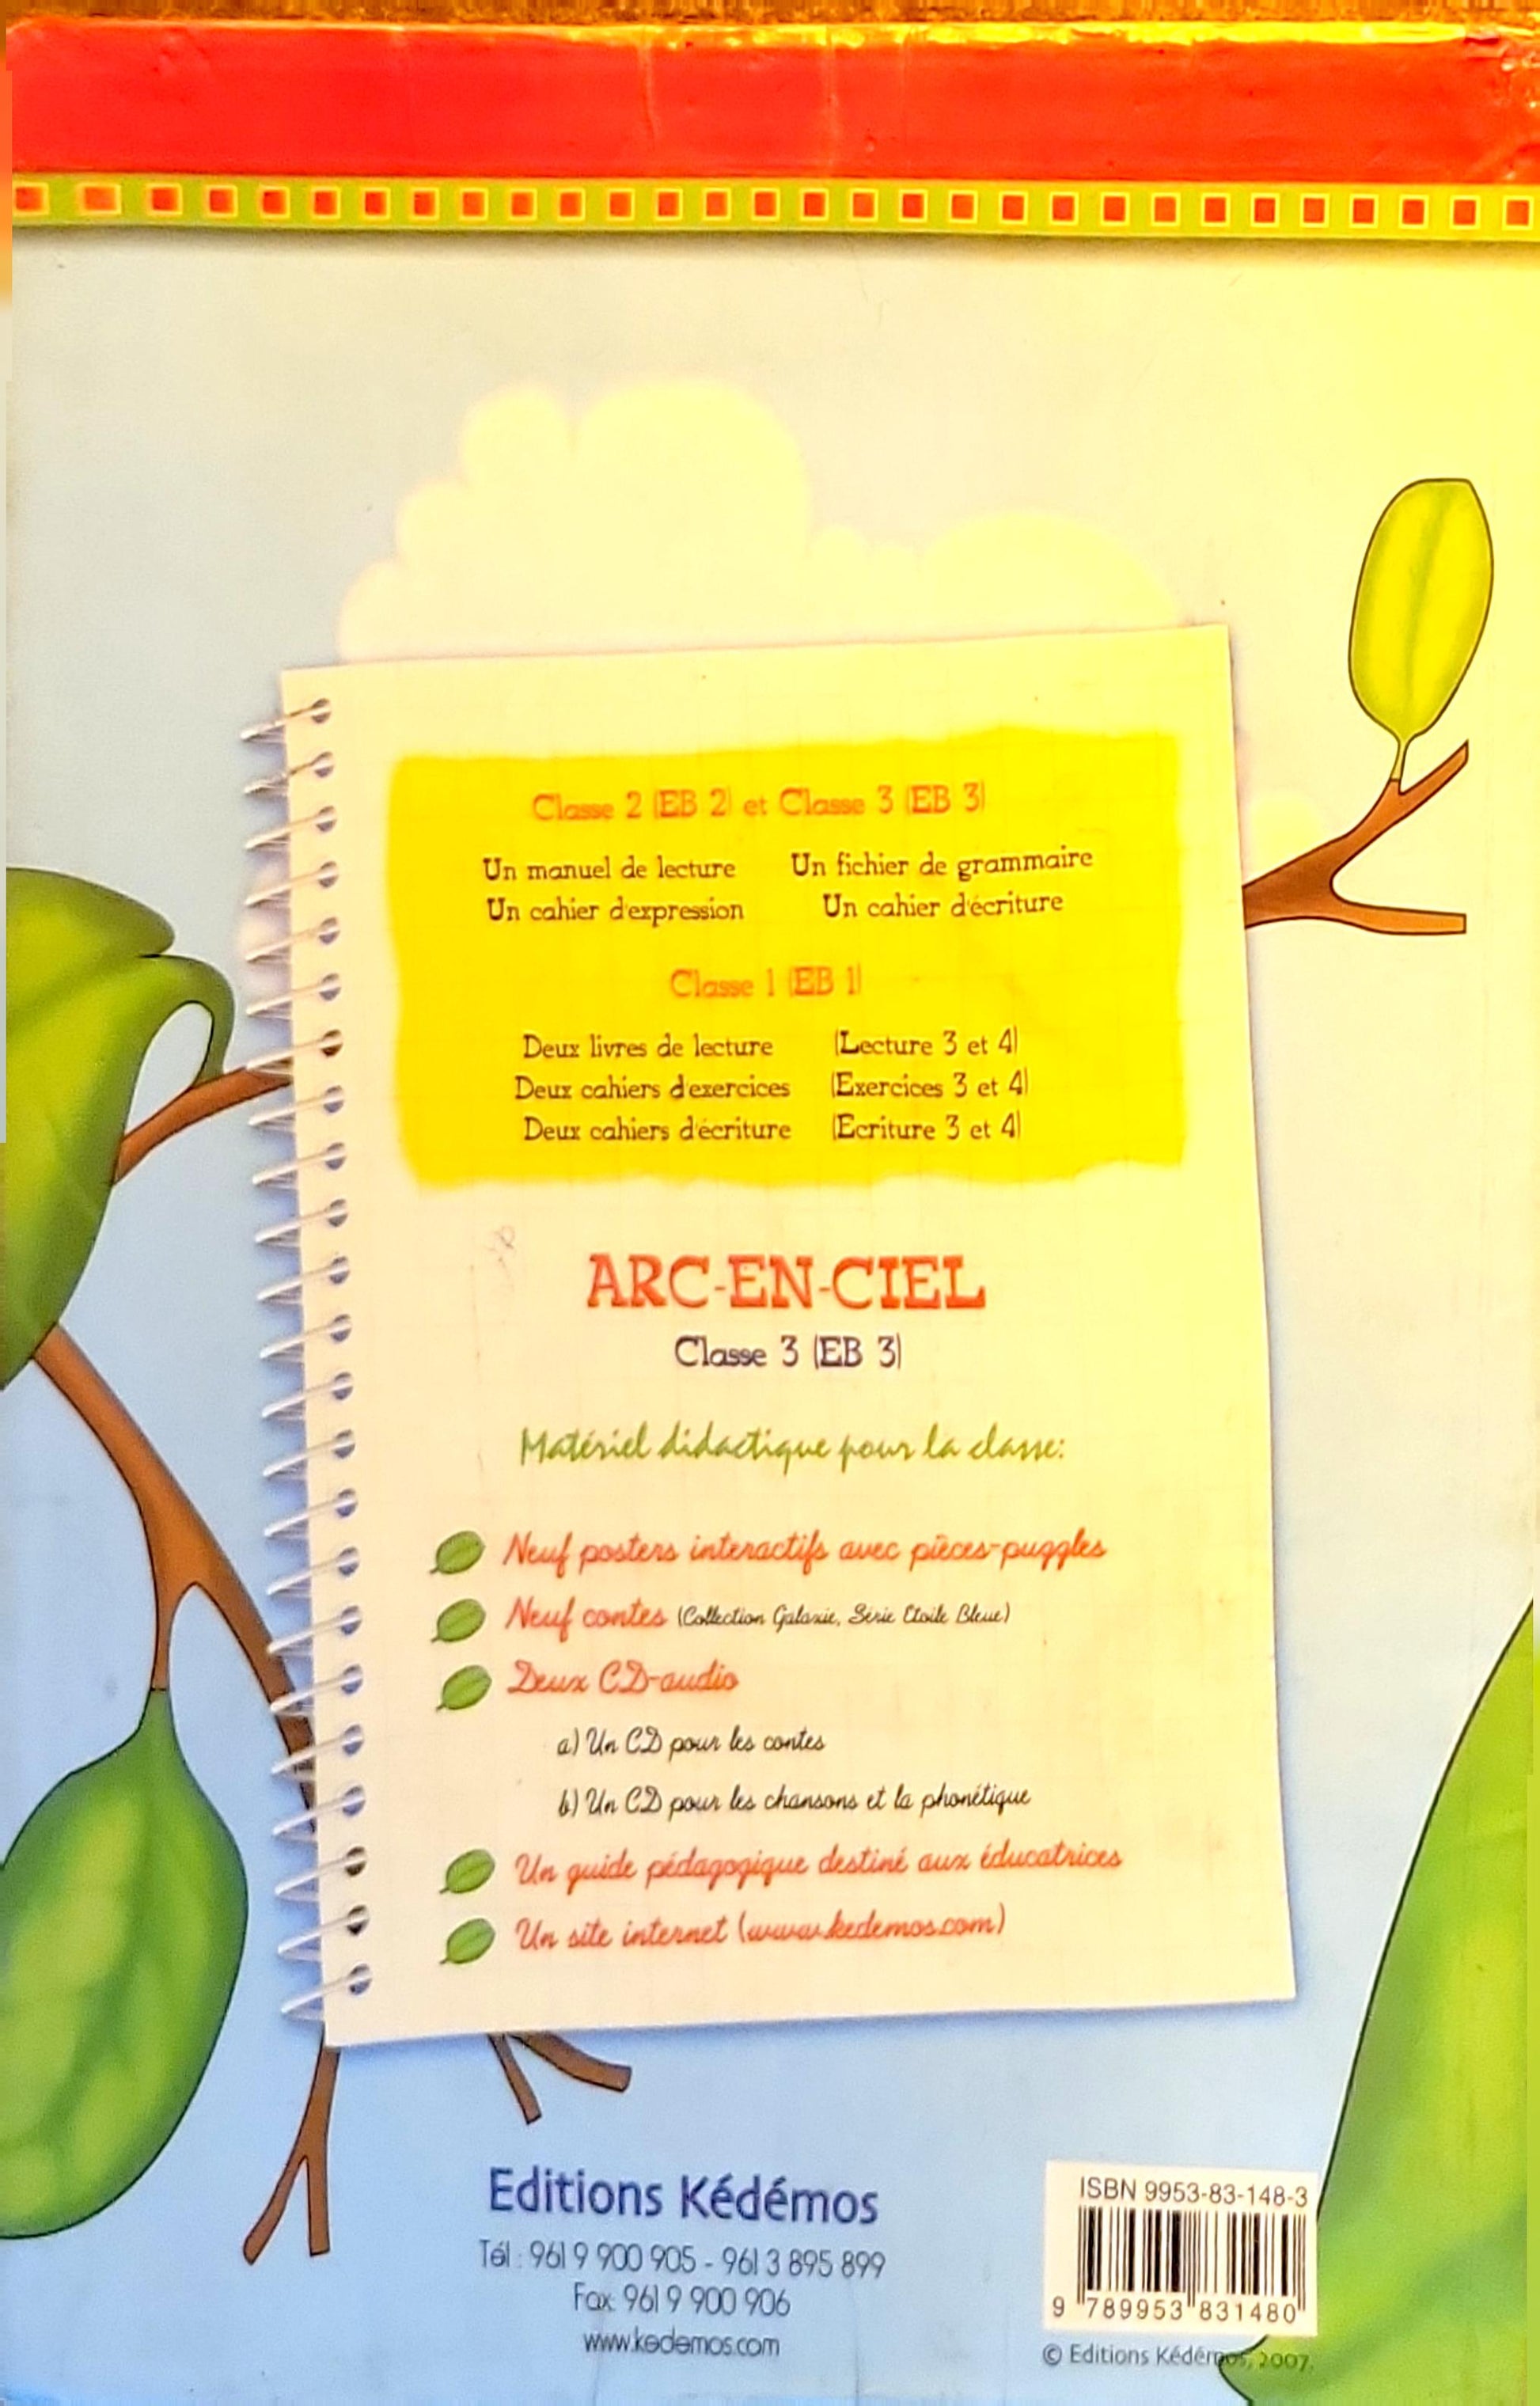 Classe 2 (EB 2) et Classe 3 (EB 3)
Un manuel de lecture Un fichier de grammaire
Un cahier d'expression Un cahier d'écriture
Classe 1 (EB 1)
Deux livres de lecture (Lecture 3 et 4)
Deux cahiers d'exercices (Exercices 3 et 4)
Deux cahiers d'écriture (Ecriture 3 et 4)
ARC-EN-CIEL
Classe 3 (EB 3)
Matériel didactique pour la classe:
Neuf posters interactifs avec pièces-puggles
Neuf contes (Collection Galaxie, Série Etoile Bleue)
Deux CD-audio
a) Un CD pour les contes
b) Un CD pour les chansons et la phonétique
Un guide pédagogique destiné aux éducatrices
Un site internet (www.kedemos.com)
Editions Kédémos
Tél : 961 9 900 905 - 961 3 895 899
Fax: 961 9 900 906
www.kedemos.com
ISBN 9953-83-148-3
9 789953 831480
© Editions Kédémos, 2007.